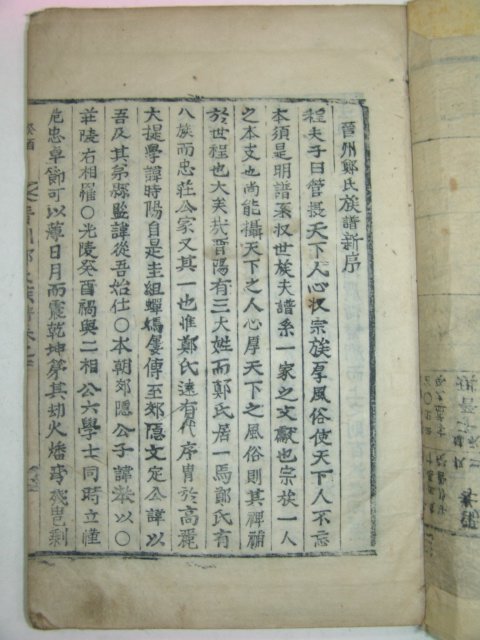 晋州鄭氏族譜新序
程夫子曰管摂天下人心収宗族厚風俗使天下人不忘
本須是明譜系収世族夫譜系一家之文獻也宗族一人
之本支也尚能攝天下之人心厚天下之風俗則其裨補
於世程也大矣哉晋陽有三大姓而鄭氏居一焉鄭氏有
八族而忠莊公家又其一也惟鄭氏遠有代序胄於高麗
大提學諱時陽自是圭組蟬嫣屢傳至郊隱文定公諱以
吾及其弟縣監諱從吾始仕〇本朝郊隱公子諱苯以〇
莊陵右相罹〇光陵癸酉禍與二相公六學士同時立慬
危忠卓節可以薄日月而震乾坤
其劫火燔
剩